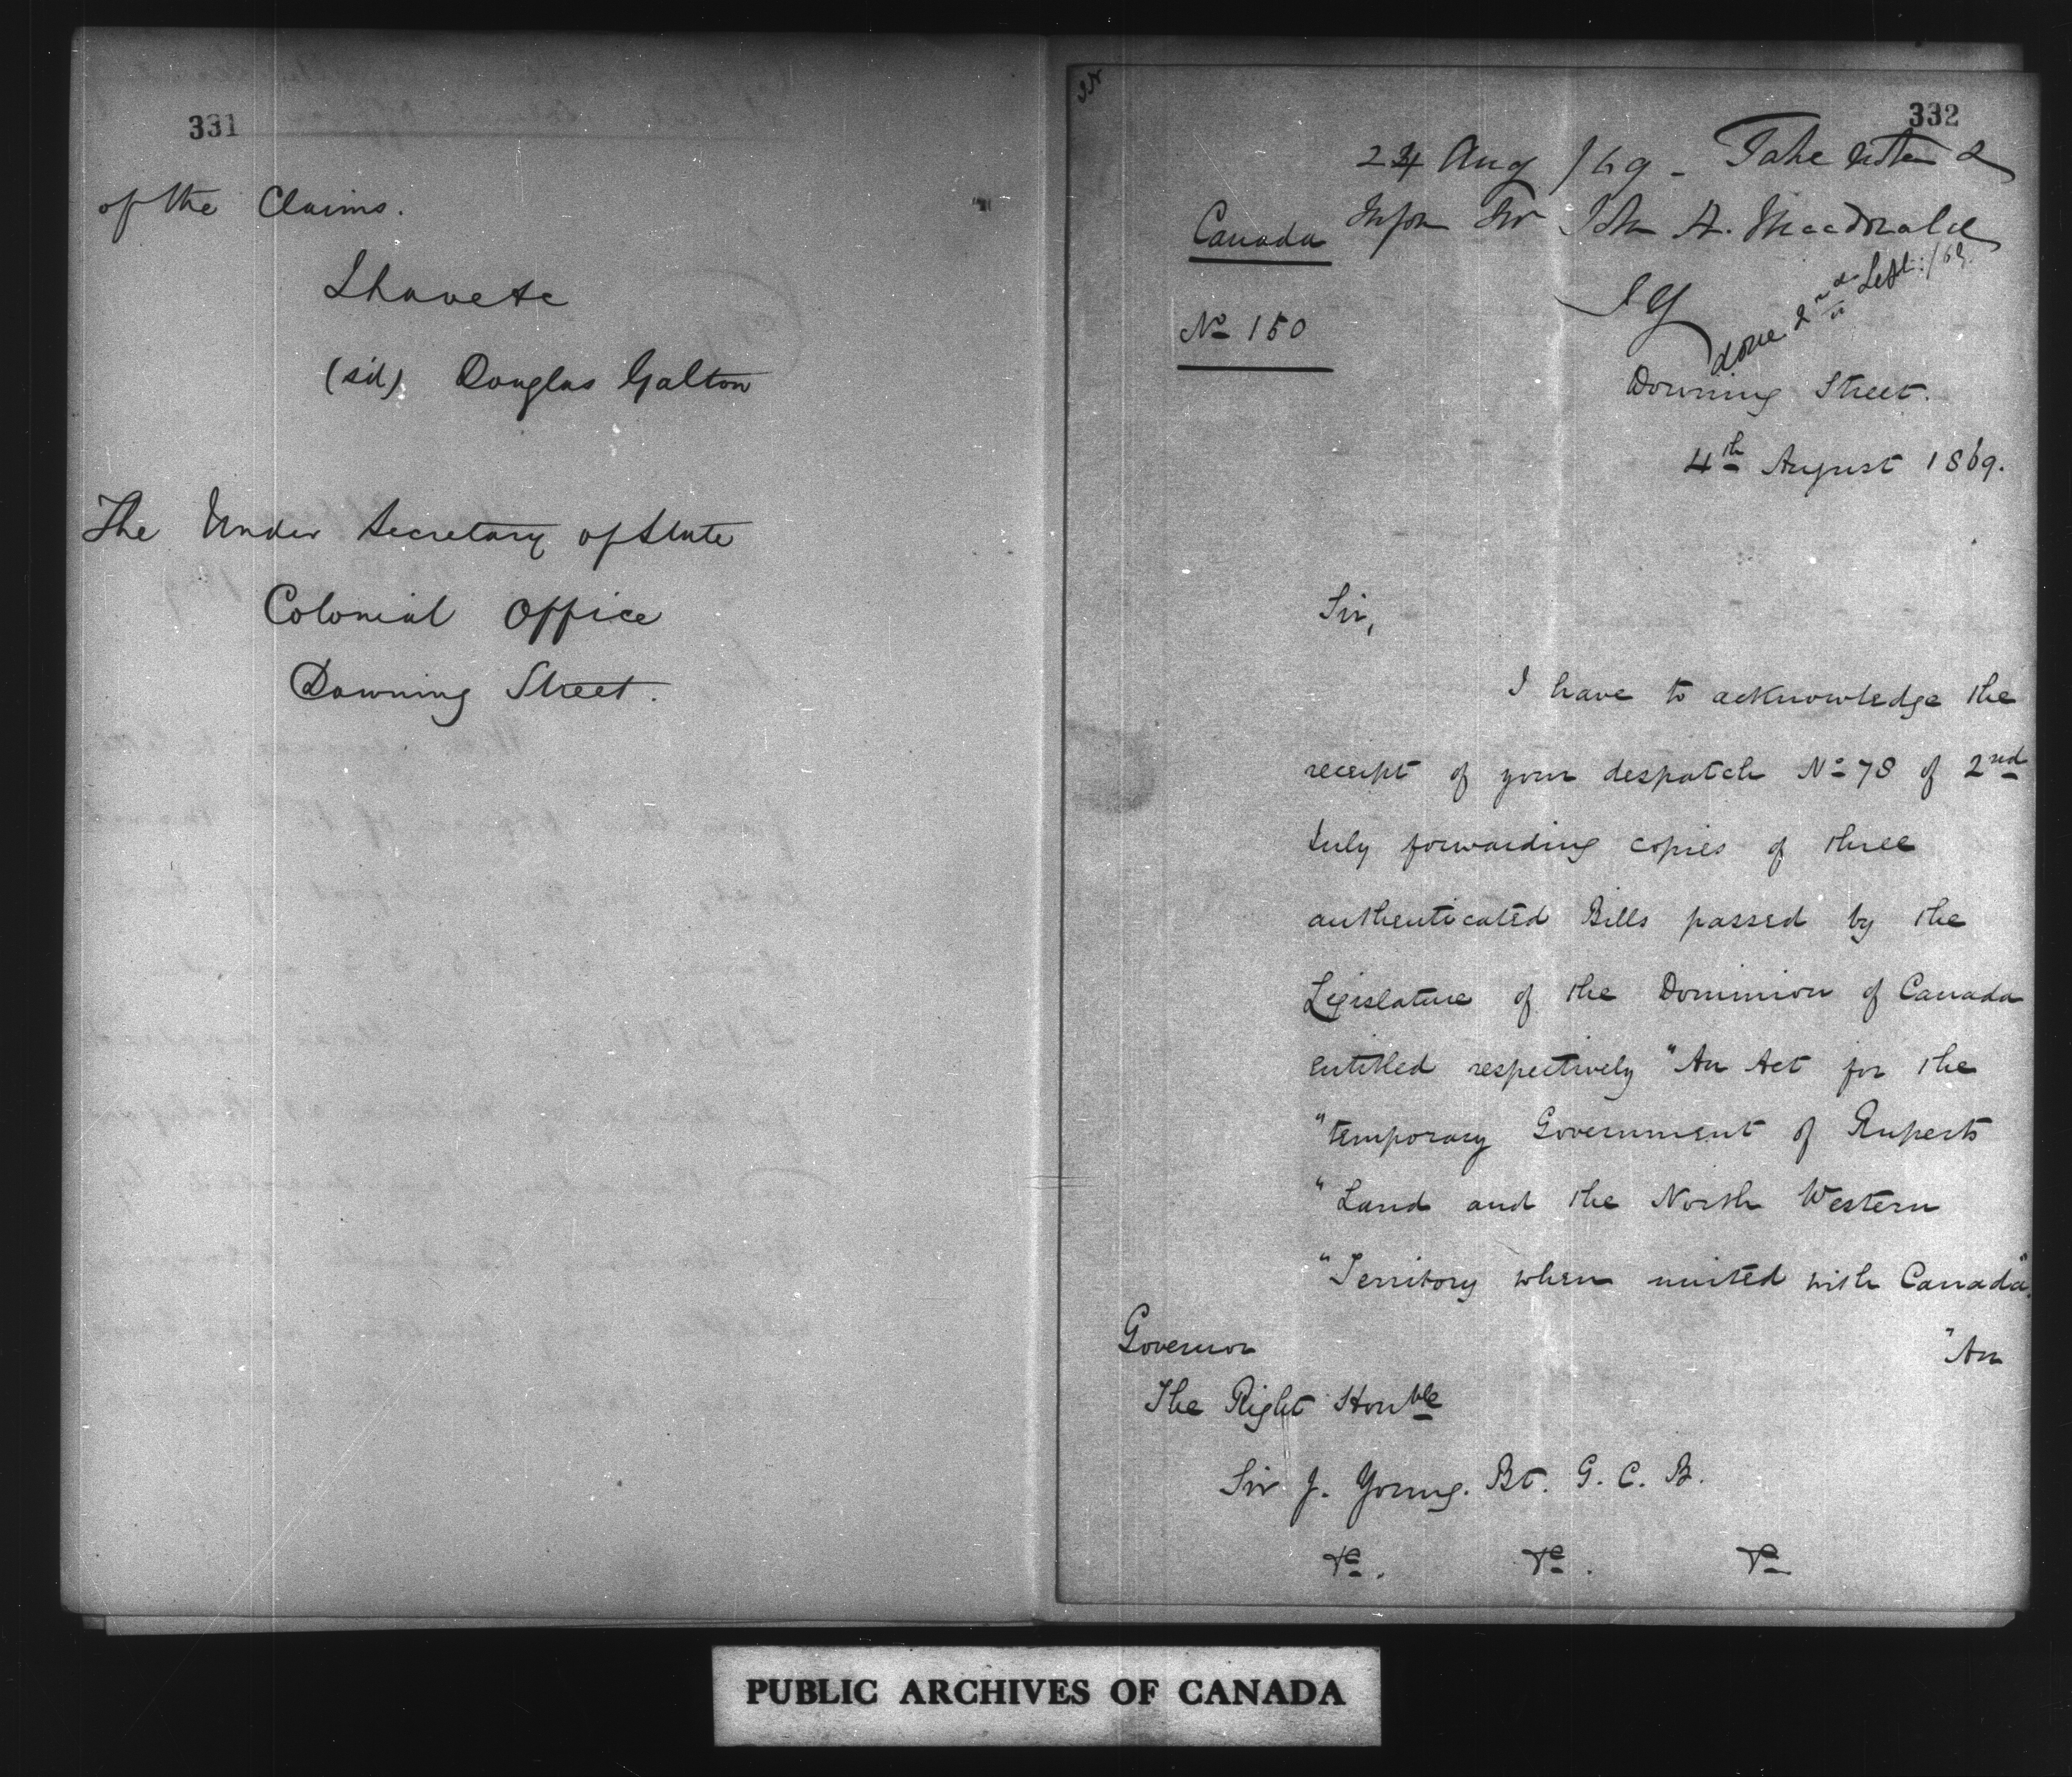 331
of the Claims.
I have &c
(sd) Douglas Galton
The Under Secretary of State
Colonial Office
Downing Street.
332
24 Aug /69 - Take action &
Inform Sir John A. MacDonald
JY
done 2nd Sept: /69.
Canada
No 150
Downing Street.
4th August 1869.
Sir,
I have to acknowledge the
receipt of your despatch No 78 of 2nd
July forwarding copies of three
authenticated Bills passed by the
Legislature of the Dominion of Canada
entitled respectively "An Act for the
"temporary Government of Ruperts
"Land and the North Western
"Territory when united with Canada".
"An
Governor
The Right Honble
Sir J. Young. Bt. G. C. B.
&c. &c. &c
PUBLIC ARCHIVES OF CANADA